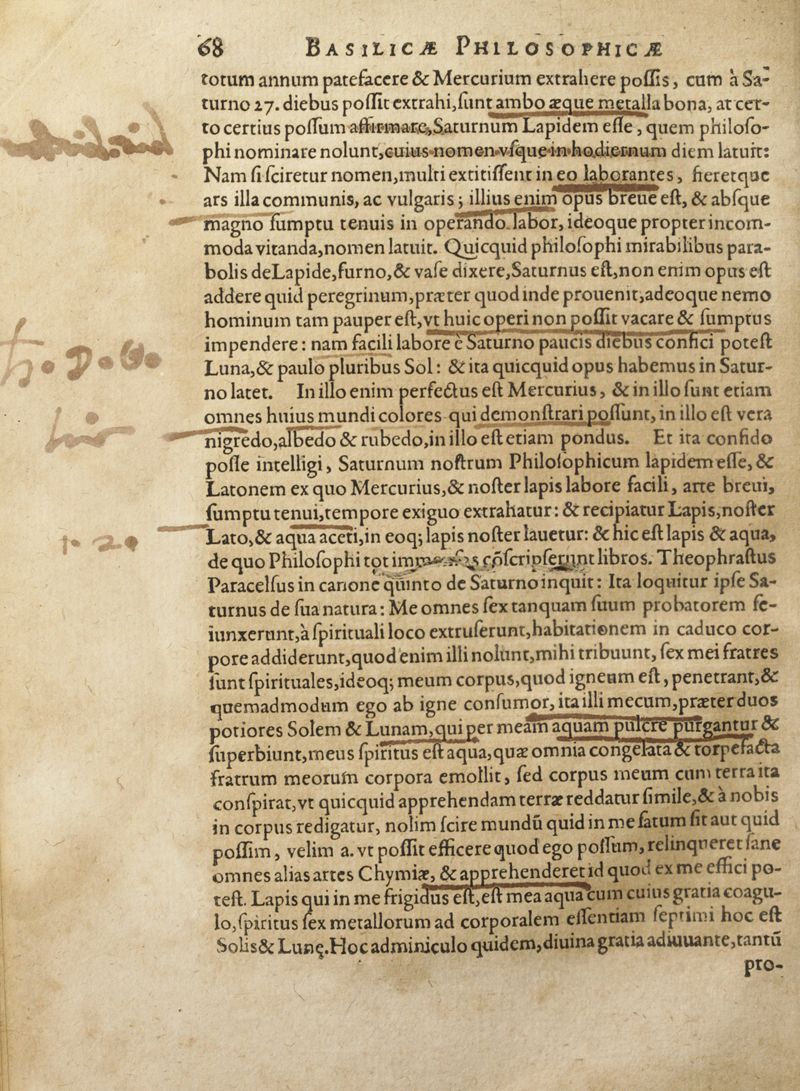 68 BASILICÆ PHILOSOPHICÆ
totum annum patefacere & Mercurium extrahere possis, cum à Sa-
turno 27. diebus possit extrahi, sunt ambo æque metalla bona, at cer-
to certius possum affirmare, Saturnum Lapidem esse, quem philoso-
phi nominare nolunt, cuius nomen vsque in hodiernum diem latuit:
Nam si sciretur nomen, multi extitissent in eo laborantes, fieretque
ars illa communis, ac vulgaris; illius enim opus breue est, & absque
magno sumptu tenuis in operando labor, ideoque propter incom-
moda vitanda, nomen latuit. Quicquid philosophi mirabilibus para-
bolis de Lapide, furno, & vase dixere, Saturnus est, non enim opus est
addere quid peregrinum, præter quod inde prouenit, adeoque nemo
hominum tam pauper est, vt huic operi non possit vacare & sumptus
impendere: nam facili labore è Saturno paucis diebus confici potest
Luna, & paulo pluribus Sol: & ita quicquid opus habemus in Satur-
no latet. In illo enim perfectus est Mercurius, & in illo sunt etiam
omnes huius mundi colores qui demonstrari possunt, in illo est vera
nigredo, albedo & rubedo, in illo est etiam pondus. Et ita confido
posse intelligi, Saturnum nostrum Philosophicum lapidem esse, &
Latonem ex quo Mercurius, & noster lapis labore facili, arte breui,
sumptu tenui, tempore exiguo extrahatur: & recipiatur Lapis, noster
Lato, & aqua aceti, in eoq; lapis noster lauetur: & hic est lapis & aqua,
de quo Philosophi tot cōscripserunt libros. Theophrastus
Paracelsus in canone quinto de Saturno inquit: Ita loquitur ipse Sa-
turnus de sua natura: Me omnes sex tanquam suum probatorem se-
iunxerunt, à spirituali loco extruserunt, habitationem in caduco cor-
pore addiderunt, quod enim illi nolunt, mihi tribuunt, sex mei fratres
sunt spirituales, ideoq; meum corpus, quod igneum est, penetrant, &
quemadmodum ego ab igne consumor, ita illi mecum, præter duos
potiores Solem & Lunam, qui per meam aquam pulcre purgantur &
superbiunt, meus spiritus est aqua, quæ omnia congelata & torpefacta
fratrum meorum corpora emollit, sed corpus meum cum terra ita
conspirat, vt quicquid apprehendam terræ reddatur simile, & à nobis
in corpus redigatur, nolim scire mundū quid in me fatum sit aut quid
possim, velim a. vt possit efficere quod ego possum, relinqueret sane
omnes alias artes Chymiæ, & apprehenderet id quod ex me effici po-
test. Lapis qui in me frigidus est, est mea aqua cum cuius gratia coagu-
lo, spiritus sex metallorum ad corporalem essentiam septimi hoc est
Solis & Lunę. Hoc adminiculo quidem, diuina gratia adiuuante, tantū
pro-